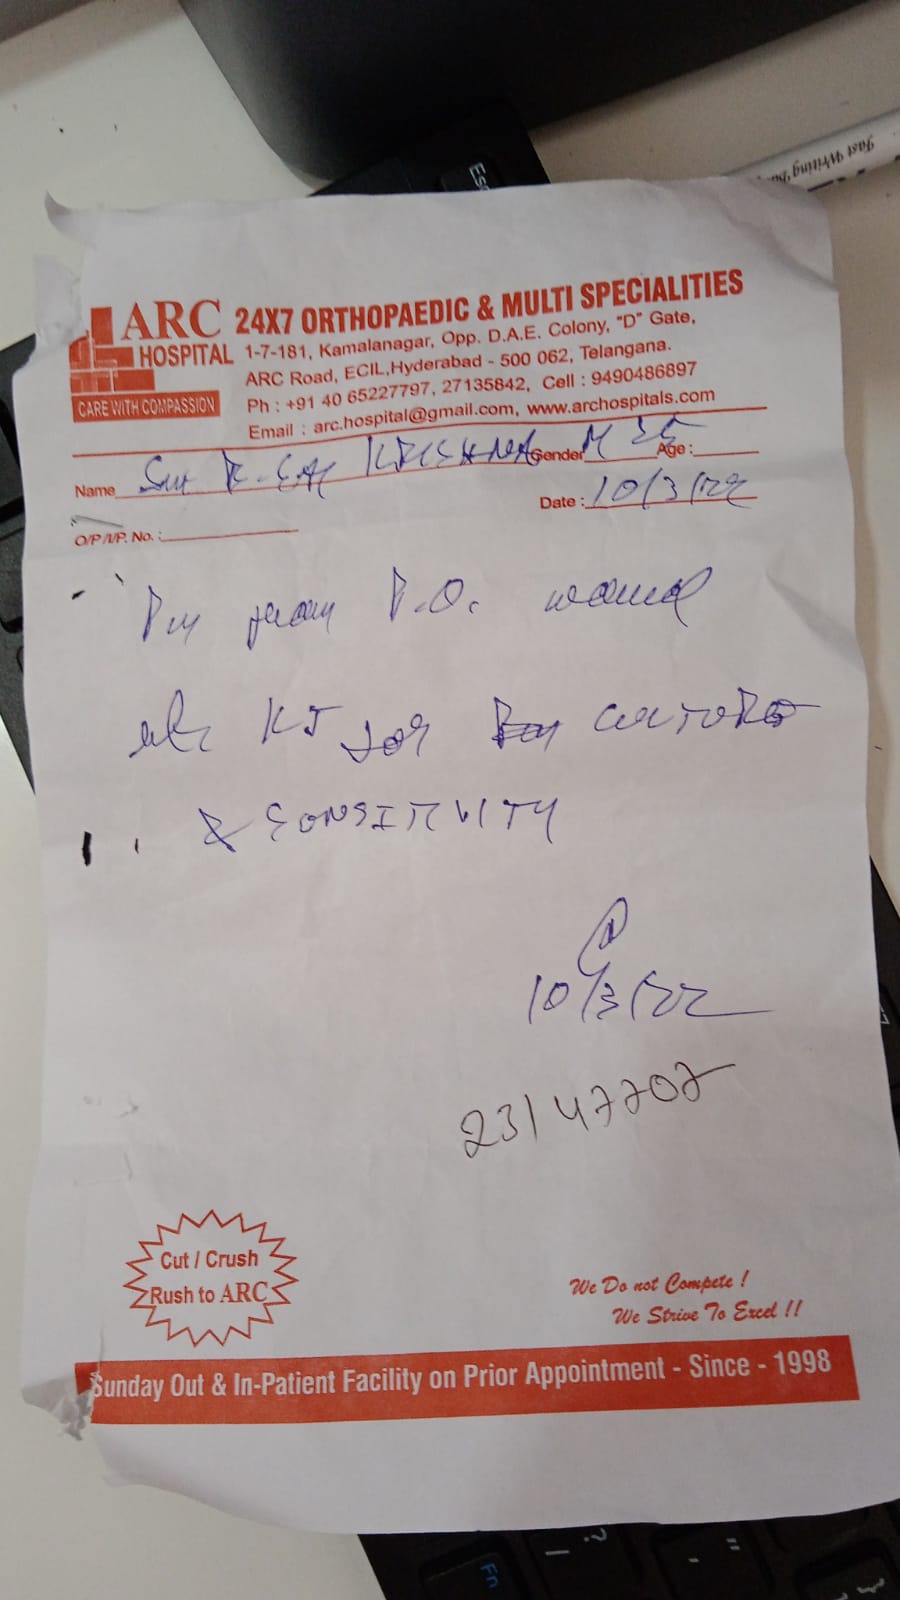 Esc
Fast Writing
ARC
HOSPITAL
CARE WITH COMPASSION
24X7 ORTHOPAEDIC & MULTI SPECIALITIES
1-7-181, Kamalanagar, Opp. D.A.E. Colony, "D" Gate,
ARC Road, ECIL,Hyderabad - 500 062, Telangana.
Ph : +91 40 65227797, 27135842, Cell : 9490486897
Email : arc.hospital@gmail.com, www.archospitals.com
Name KRISHNA Gender M Age :
Date : 10/3/22
O/P /I/P. No. :
Pus from P.O. wound
KJ for CULTURE
& SENSITIVITY
10/3/22
23147202
Cut / Crush
Rush to ARC
We Do not Compete !
We Strive To Excel !!
Sunday Out & In-Patient Facility on Prior Appointment - Since - 1998
Fn